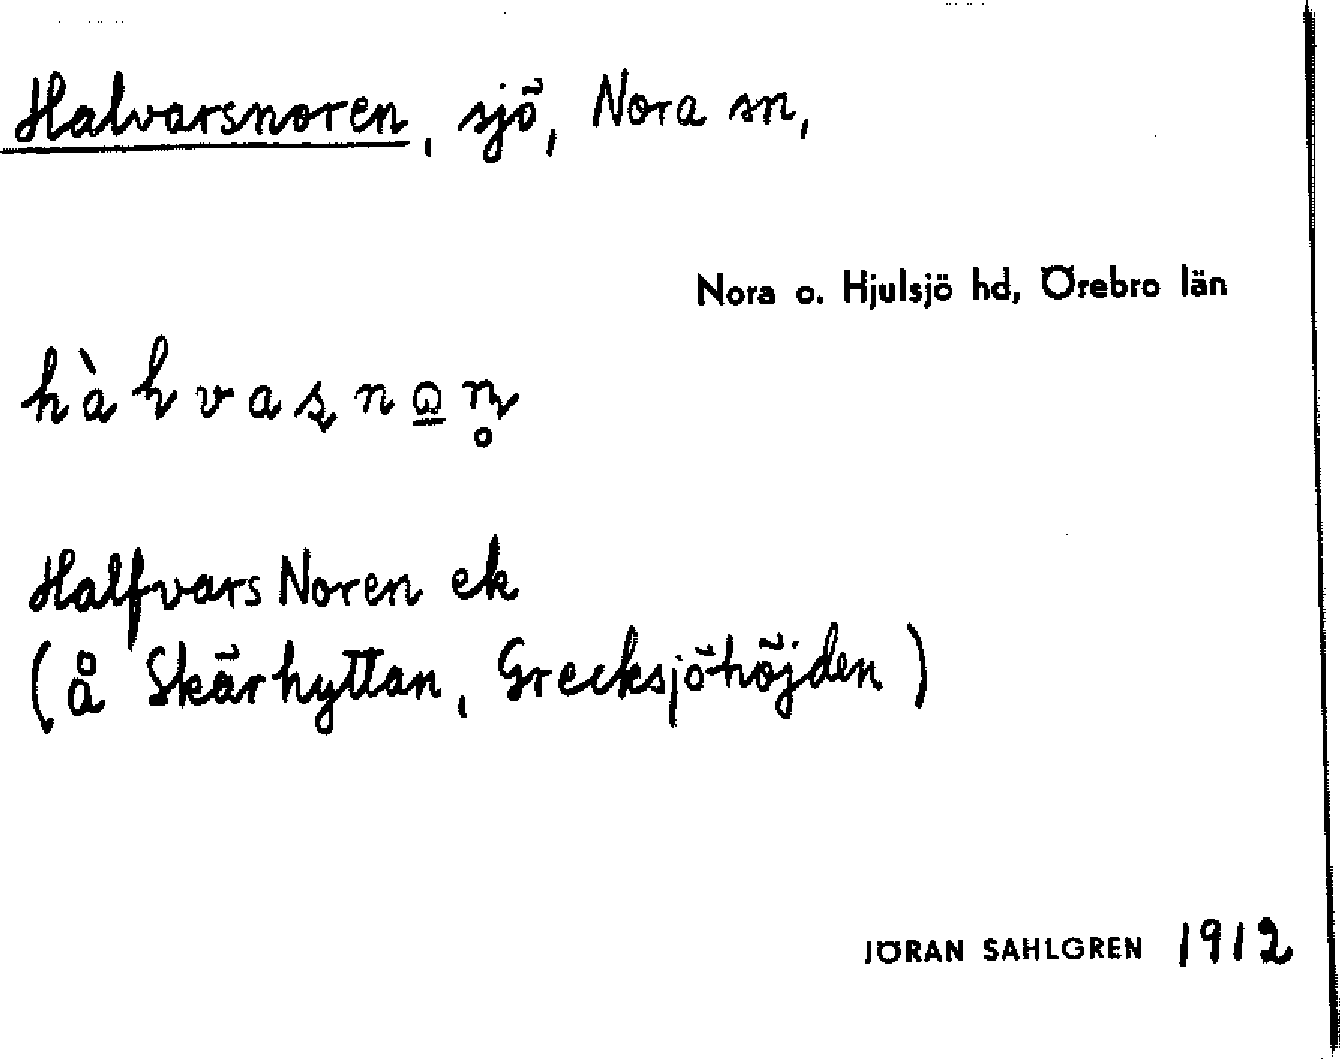 Halvarsnoren, sjö, Nora sn,
Nora o. Hjulsjö hd, Örebro län
Halfvars Noren ek
(å Skärhyttan, Grecksjöhöjden)
JÖRAN SAHLGREN 1912